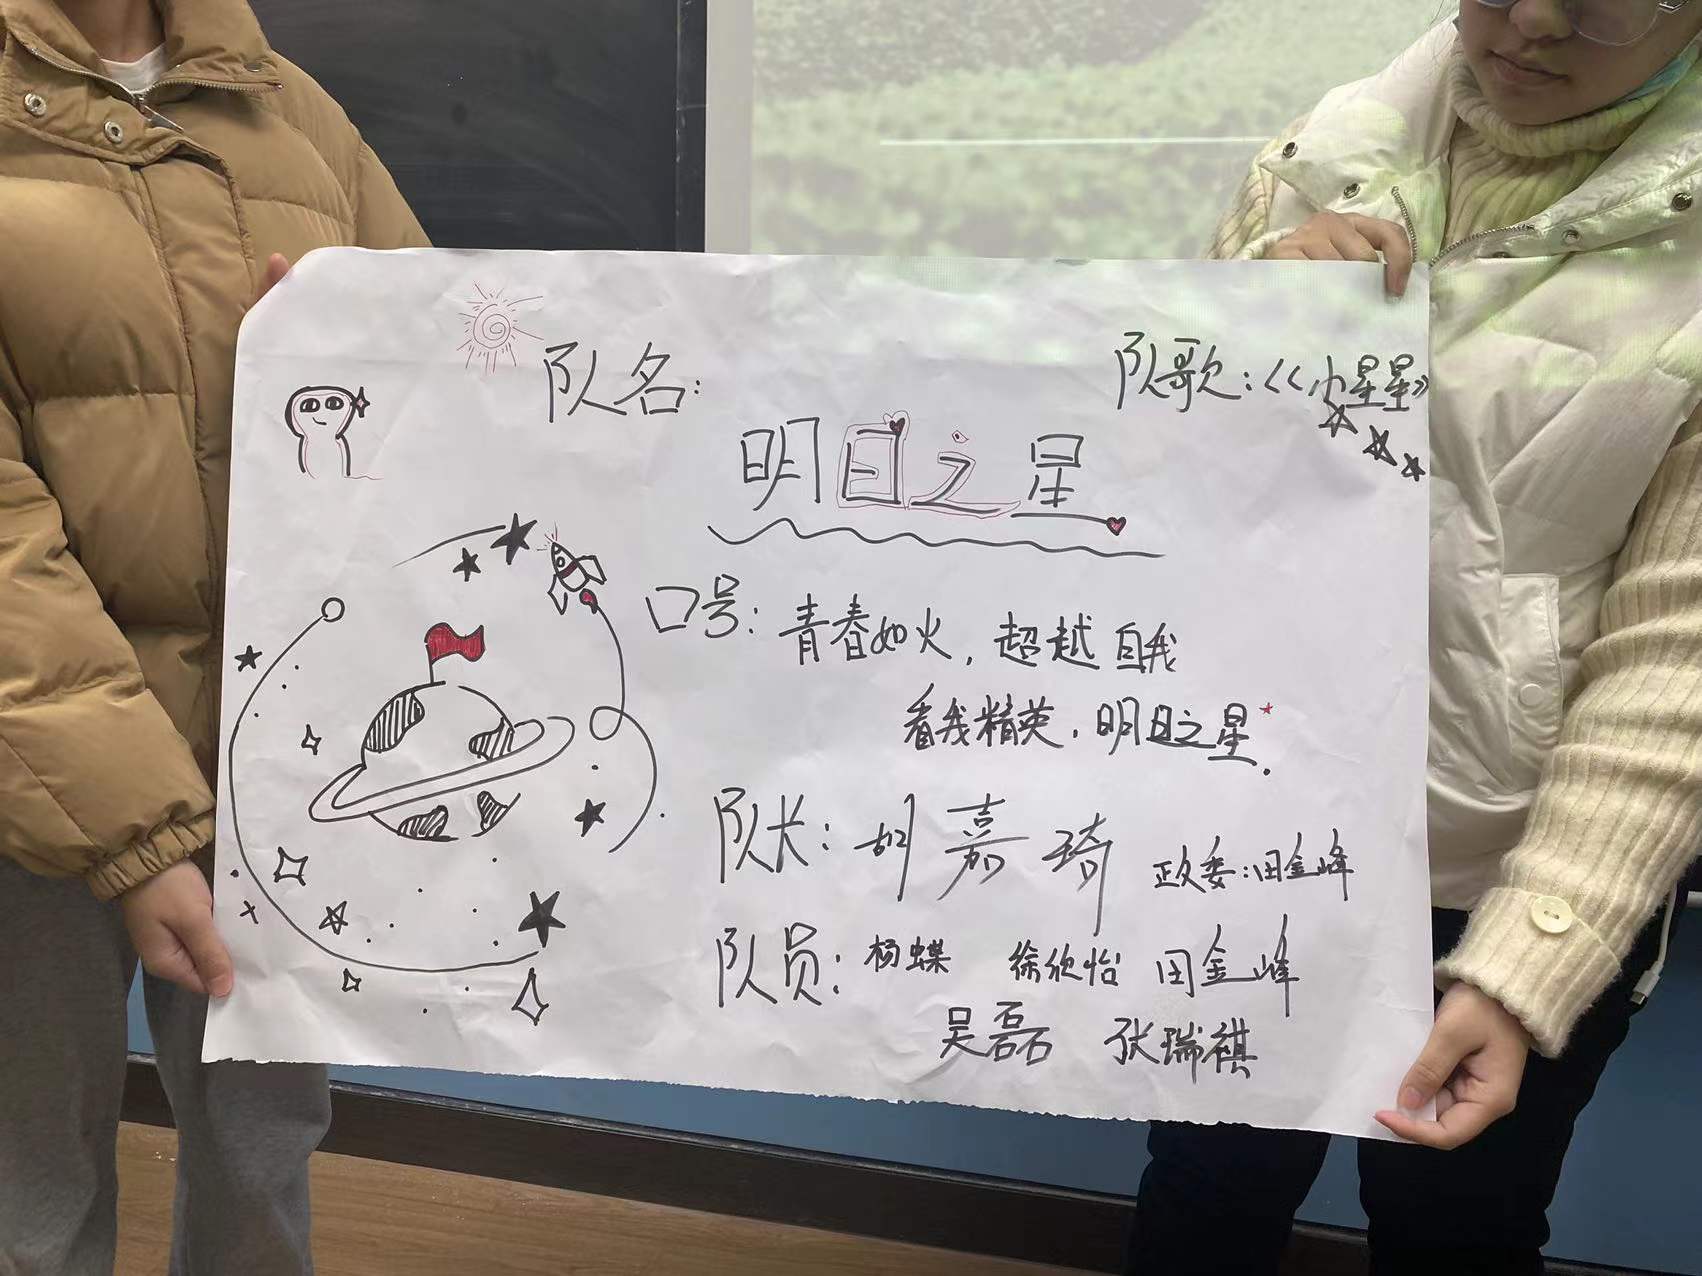 队名:
队歌:《小星星》
明日之星
口号:青春如火,超越自我
看我精英,明日之星.
队长:胡嘉琦 政委:田金峰
队员:杨蝶 徐欣怡 田金峰
吴磊 张瑞祺